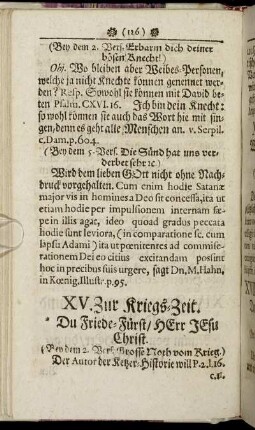 (116)
(Bey dem 2. Vers. Erbarm dich deiner
bösen Knecht!)
Obj. Wo bleiben aber Weibes-Personen,
welche ja nicht Knechte können genennet wer-
den? Resp. Sowohl sie können mit David be-
ten Psalm. CXVI. 16. Ich bin dein Knecht:
so wohl können sie auch das Wort hie mit sin-
gen, denn es geht alle Menschen an. v. Serpil.
c. Dam. p. 604.
(Bey dem 5. Vers. Die Sünd hat uns ver-
derbet sehr ꝛc.)
Wird dem lieben GOtt nicht ohne Nach-
druck vorgehalten. Cum enim hodie Satanæ
major vis in homines a Deo sit concessa, ita ut
etiam hodie per impulsionem internam sæ-
pe in illis agat, ideo quoad gradus peccata
hodie sunt leviora, (in comparatione sc. cum
lapsu Adami) ita ut pœnitentes ad commise-
rationem Dei eo citius excitandam possint
hoc in precibus suis urgere, sagt Dn. M. Hahn,
in Kœnig. Illustr. p. 95.
XV. Zur Kriegs-Zeit.
Du Friede-Fürst / HErr JEsu
Christ.
(Bey dem 2. Vers. Grosse Noth vom Krieg.)
Der Autor der Ketzer-Historie will P. 2. l. 16.